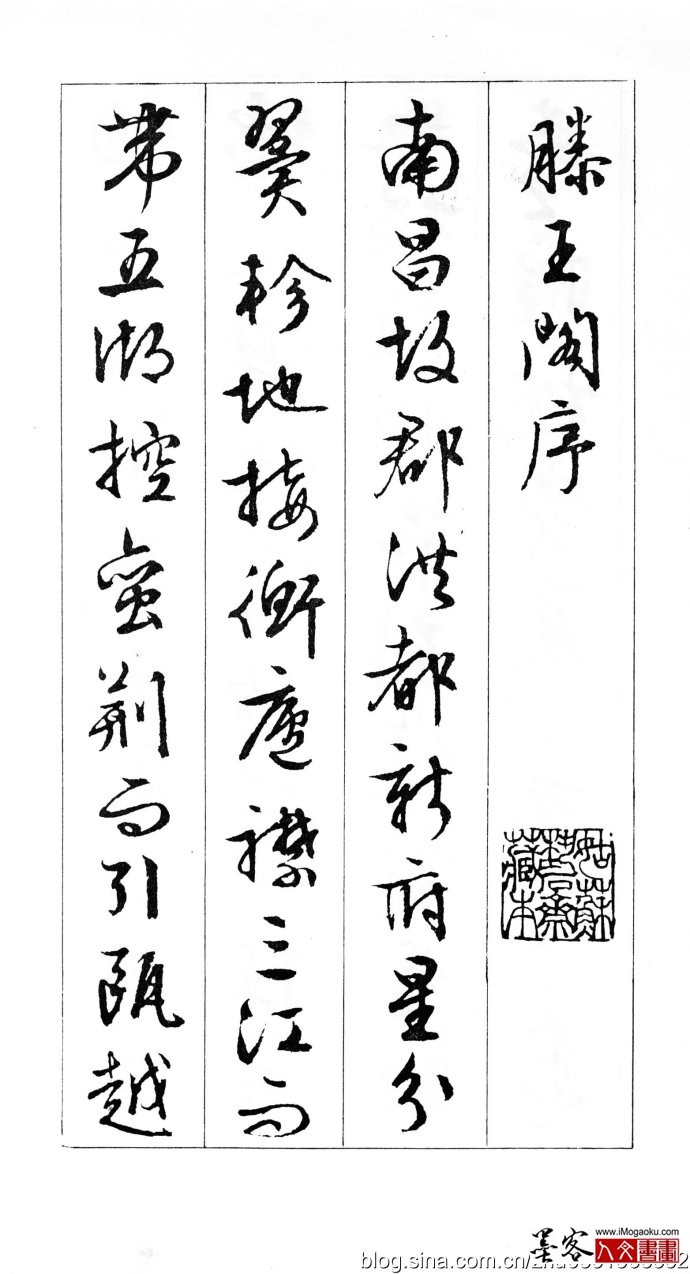 滕王閣序
南昌故郡洪都新府星分
翼軫地接衡廬襟三江而
帶五湖控蠻荊而引甌越
姑蘇
藏本
墨客
www.iMogaoku.com
人文書畫